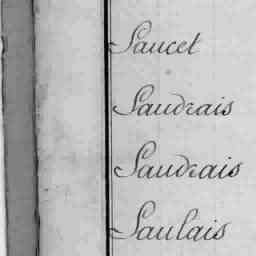 Saucet
Saudrais
Saudrais
Saulais